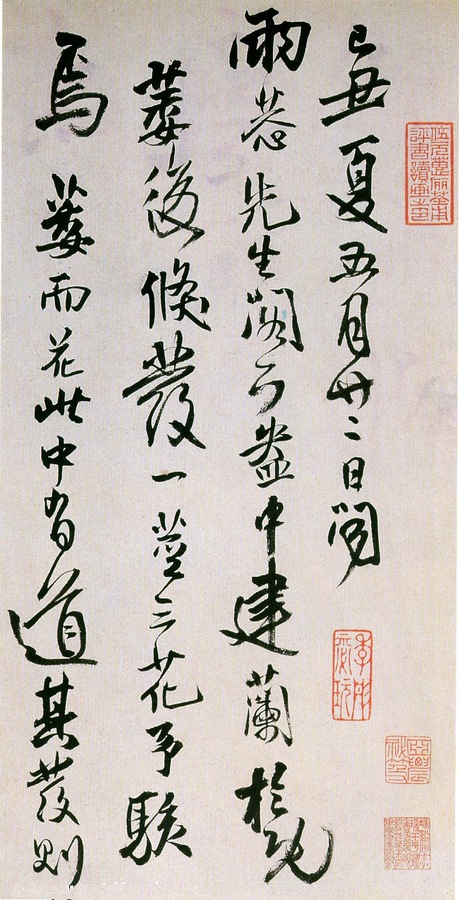 己丑夏五月廿二日閱
雨若先生閣下盎中建蘭於既
萎後倏發一莖三花予駭
焉萎而花此中有道其發則